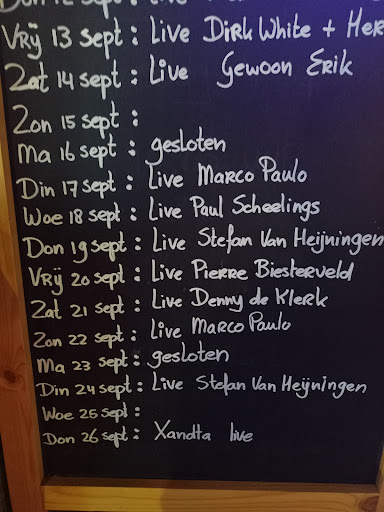 Don 12 sept: Live
Vrÿ 13 sept: Live Dirk White + Her
Zat 14 sept: Live Gewoon Erik
Zon 15 sept:
Ma 16 sept: gesloten
Din 17 sept: Live Marco Paulo
Woe 18 sept: Live Paul Scheelings
Don 19 sept: Live Stefan Van Heijningen
Vrÿ 20 sept: Live Pierre Biesterveld
Zat 21 sept: Live Denny de Klerk
Zon 22 sept: Live Marco Paulo
Ma 23 sept: gesloten
Din 24 sept: Live Stefan Van Heÿningen
Woe 25 sept:
Don 26 sept: Xandta live